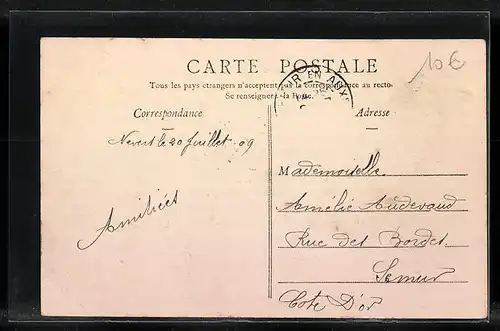 CARTE POSTALE
10€
Tous les pays étrangers n'acceptent pas la correspondance au recto.
Se renseigner à la Poste.
UR EN AUX
Correspondance
Adresse
Nevers le 20 Juillet 09
Mademoiselle
Amitiés
Amélie Audevaud
Rue des Bordes
Semur
Cote D'or